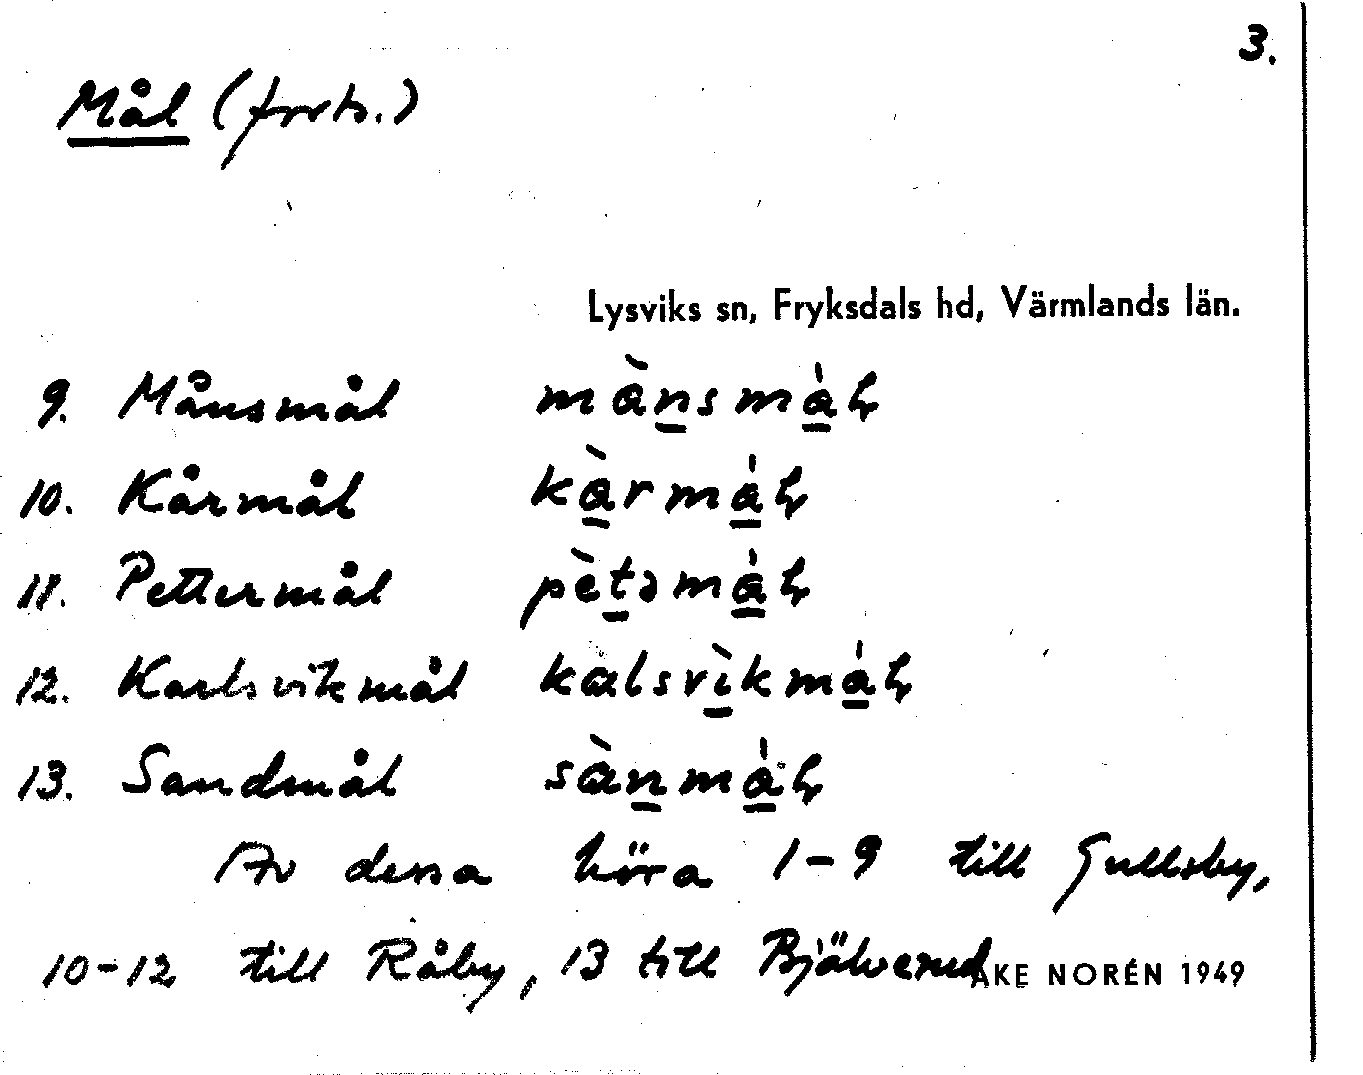 3.
Mål (forts.)
Lysviks sn, Fryksdals hd, Värmlands län.
9. Månsmål
10. Kårmål
11. Pettermål
12. Karlsvikmål
13. Sandmål
Av dessa höra 1-9 till Gullsby,
10-12 till Råby, 13 till Bjälverud
ÅKE NORÉN 1949